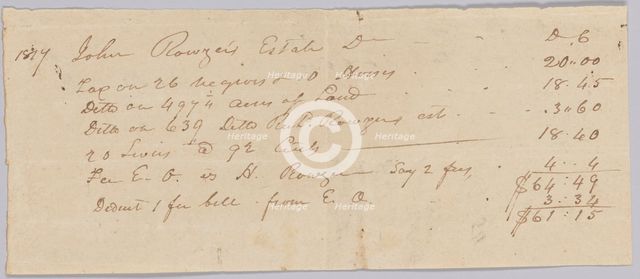 1817 John Rowzee's Estate Dr D C
Tax on 26 negroes & Horses 20..00
Ditto on 497¼ acres of Land 18.45
Ditto on 639 Ditto Rowzees est. .3..60
20 Levies @ 92 Cents 18.40
Fee E. O. vs H. Rowzee Say 2 fees, 4..4
$64:49
Deduct 1 fee bill from E. O 3:34
$61:15
Heritage
Heritage
Heritage
Heritage
Heritage
Heritage
Heritage
Heritage